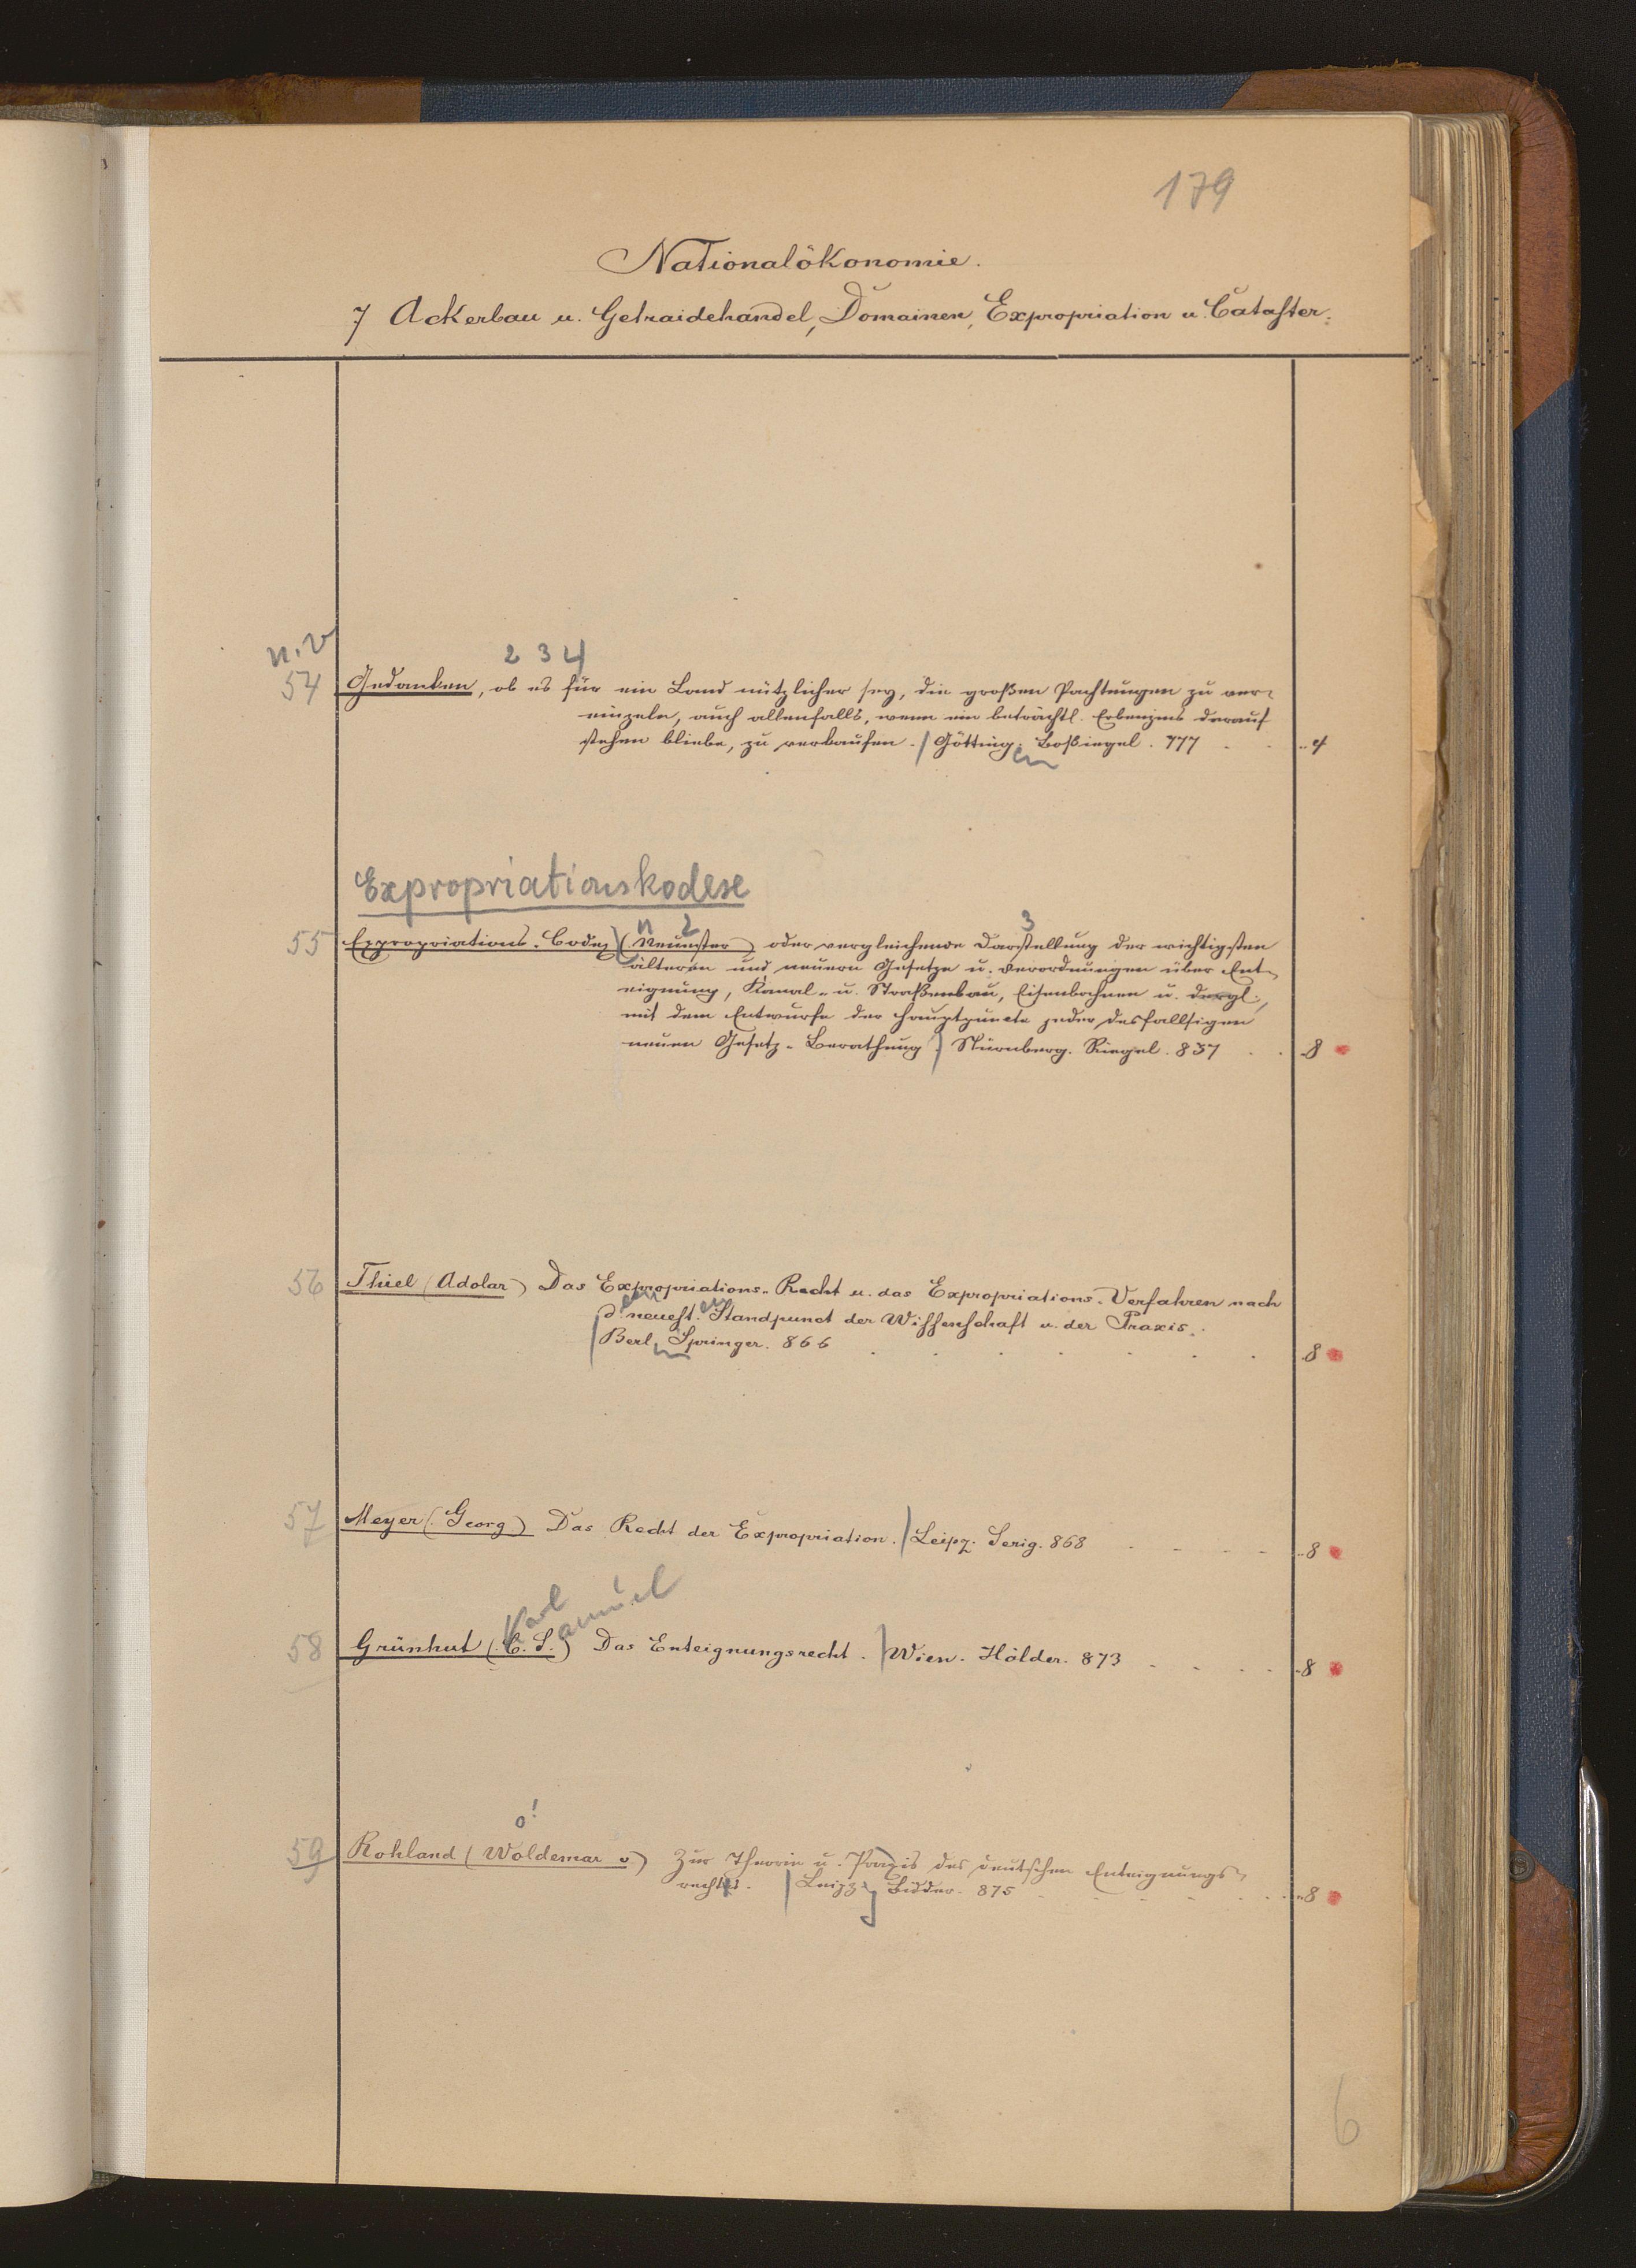 179
Nationalökonomie.
7 Ackerbau u. Getraidehandel, Domainen, Expropriation u. Cataster.
n. v
2 3 4
54 Gedanken, ob es für ein Land nützlicher sey, die großen Pachtungen zu ver-
einzeln, auch allenfalls, wenn ein beträchtl. Erbenzins darauf
stehen bliebe, zu verkaufen. / Götting. Boßiegel. 777 . . 4
en
Expropriationskodexe
n 2 3
55 Expropriations-Codex (Neuester) oder vergleichende Darstellung der wichtigsten
älteren und neuern Gesetze u. Verordnungen über Ent-
eignung, Kanal- u. Straßenbau, Eisenbahnen u. dergl.,
mit dem Entwurfe der Hauptpuncte jeder desfallsigen
neuen Gesetz-Berathung. / Nürnberg. Riegel. 837 . . 8
56 Thiel (Adolar) Das Expropriations-Recht u. das Expropriations-Verfahren nach
em en
d. neuest. Standpunct der Wissenschaft u. der Praxis.
/ Berl. Springer. 866 . . . . . . . 8
in
57 Meyer (Georg) Das Recht der Expropriation. / Leipz. Serig. 868 . . . . 8
Karl amuel
58 Grünhut (C. S.) Das Enteignungsrecht. / Wien. Hölder. 873 . . . . 8
o!
59 Rohland (Woldemar v.) Zur Theorie u. Praxis des deutschen Enteignungs-
rechts. / Leipzg Bidder. 875 . . . . . . 8
6